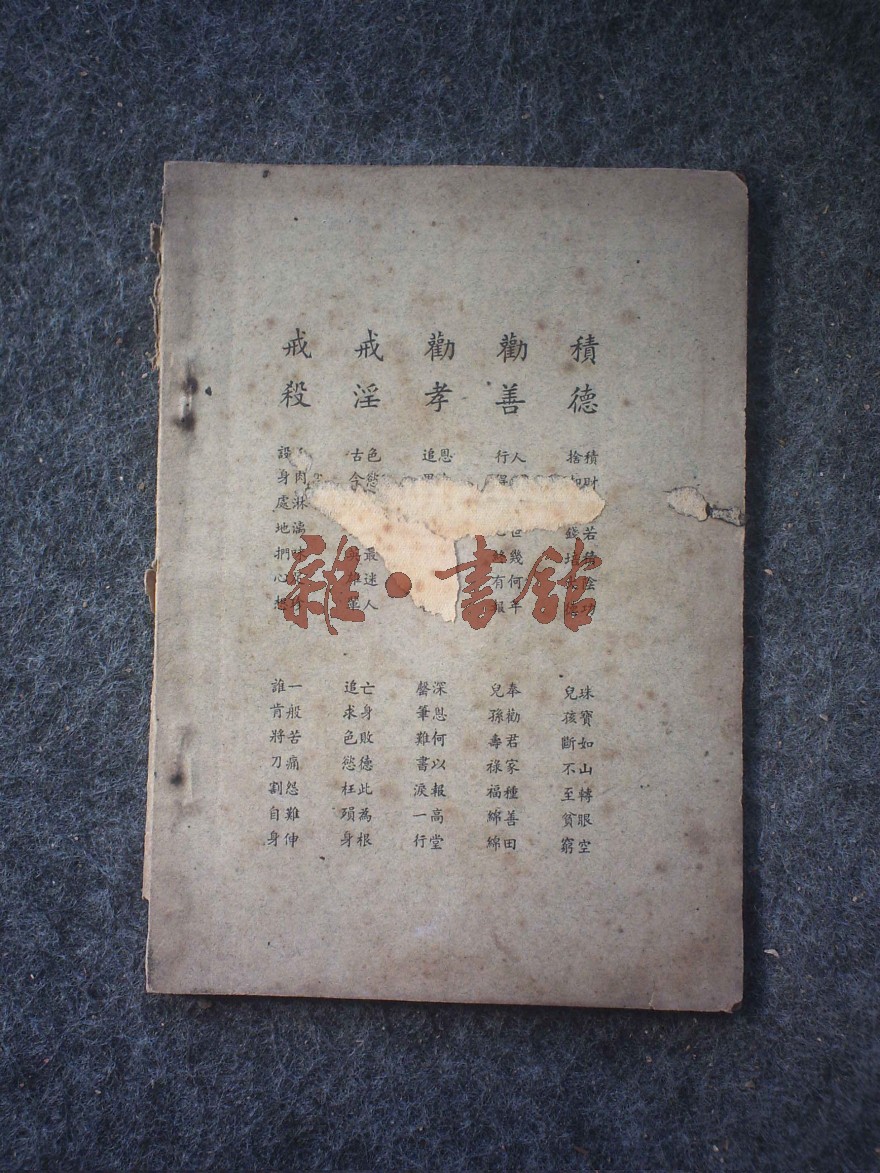 積德
積財若陰功
珠寶如山轉眼空
捨錢
兒孩斷不至貧窮
勸善
人世幾何年
奉勸君家種善田
行有報
兒孫壽祿福綿綿
勸孝
恩
深恩何以報高堂
追
罄筆難書淚一行
戒淫
色慾最迷人
亡身敗德此為根
古今英雄輩
追求色慾枉殞身
戒殺
肉淋漓味
一般苦痛怨難伸
設身處地捫心想
誰肯將刀割自身
雜·書館